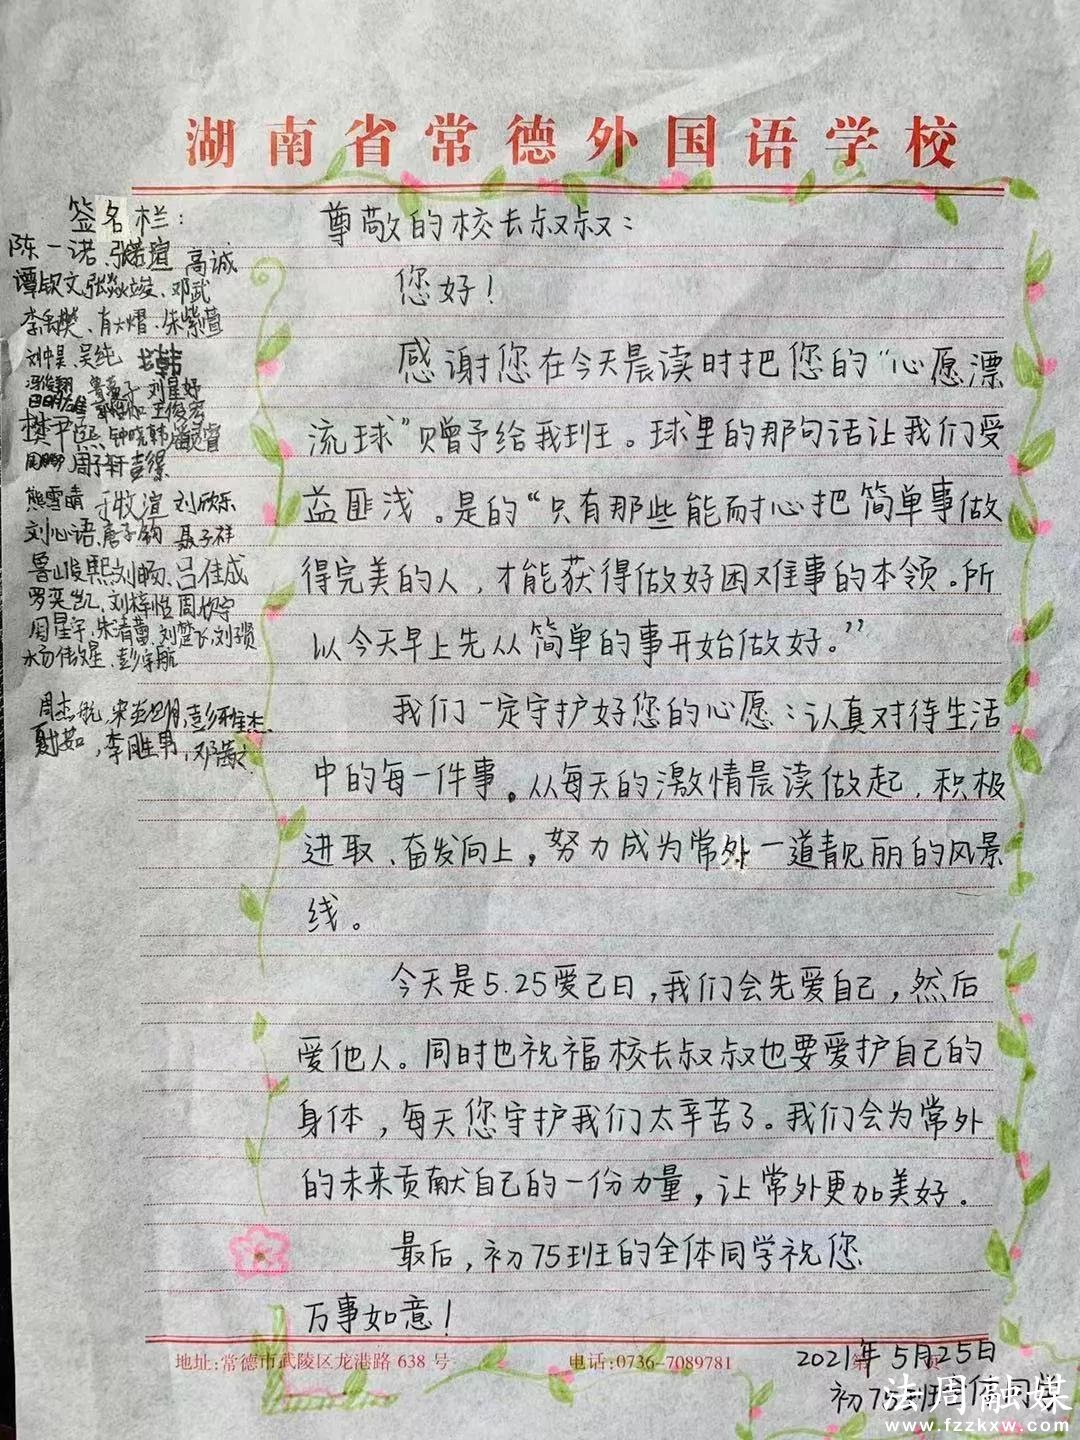 湖南省常德外国语学校
签名栏:
陈一诺、张 高诚
谭钦文、邓武
朱紫萱
刘中昊、吴纯
刘星妤
王俊宏
钟晓韩
周子轩
熊雪晴 刘欣乐
刘心语、唐子钧 聂子祥
鲁峻熙 刘旸、吕佳成
罗奕凯、刘梓怡
周星宇、朱清 刘楚飞、刘子贤
彭宇航
周杰航,
李胜男,
尊敬的校长叔叔:
您好!
感谢您在今天晨读时把您的“心愿漂
流球”赠予给我班。球里的那句话让我们受
益匪浅。是的“只有那些能耐心把简单事做
得完美的人,才能获得做好困难事的本领。所
以今天早上先从简单的事开始做好。”
我们一定守护好您的心愿:认真对待生活
中的每一件事。从每天的激情晨读做起,积极
进取、奋发向上,努力成为常外一道靓丽的风景
线。
今天是5.25爱己日,我们会先爱自己,然后
爱他人。同时也祝福校长叔叔也要爱护自己的
身体,每天您守护我们太辛苦了。我们会为常外
的未来贡献自己的一份力量,让常外更加美好。
最后,初75班的全体同学祝您
万事如意!
地址:常德市武陵区龙港路 638 号 电话:0736-7089781 第 页
2021年5月25日
初75班全体同学
法周融媒
www.fzzkxw.com